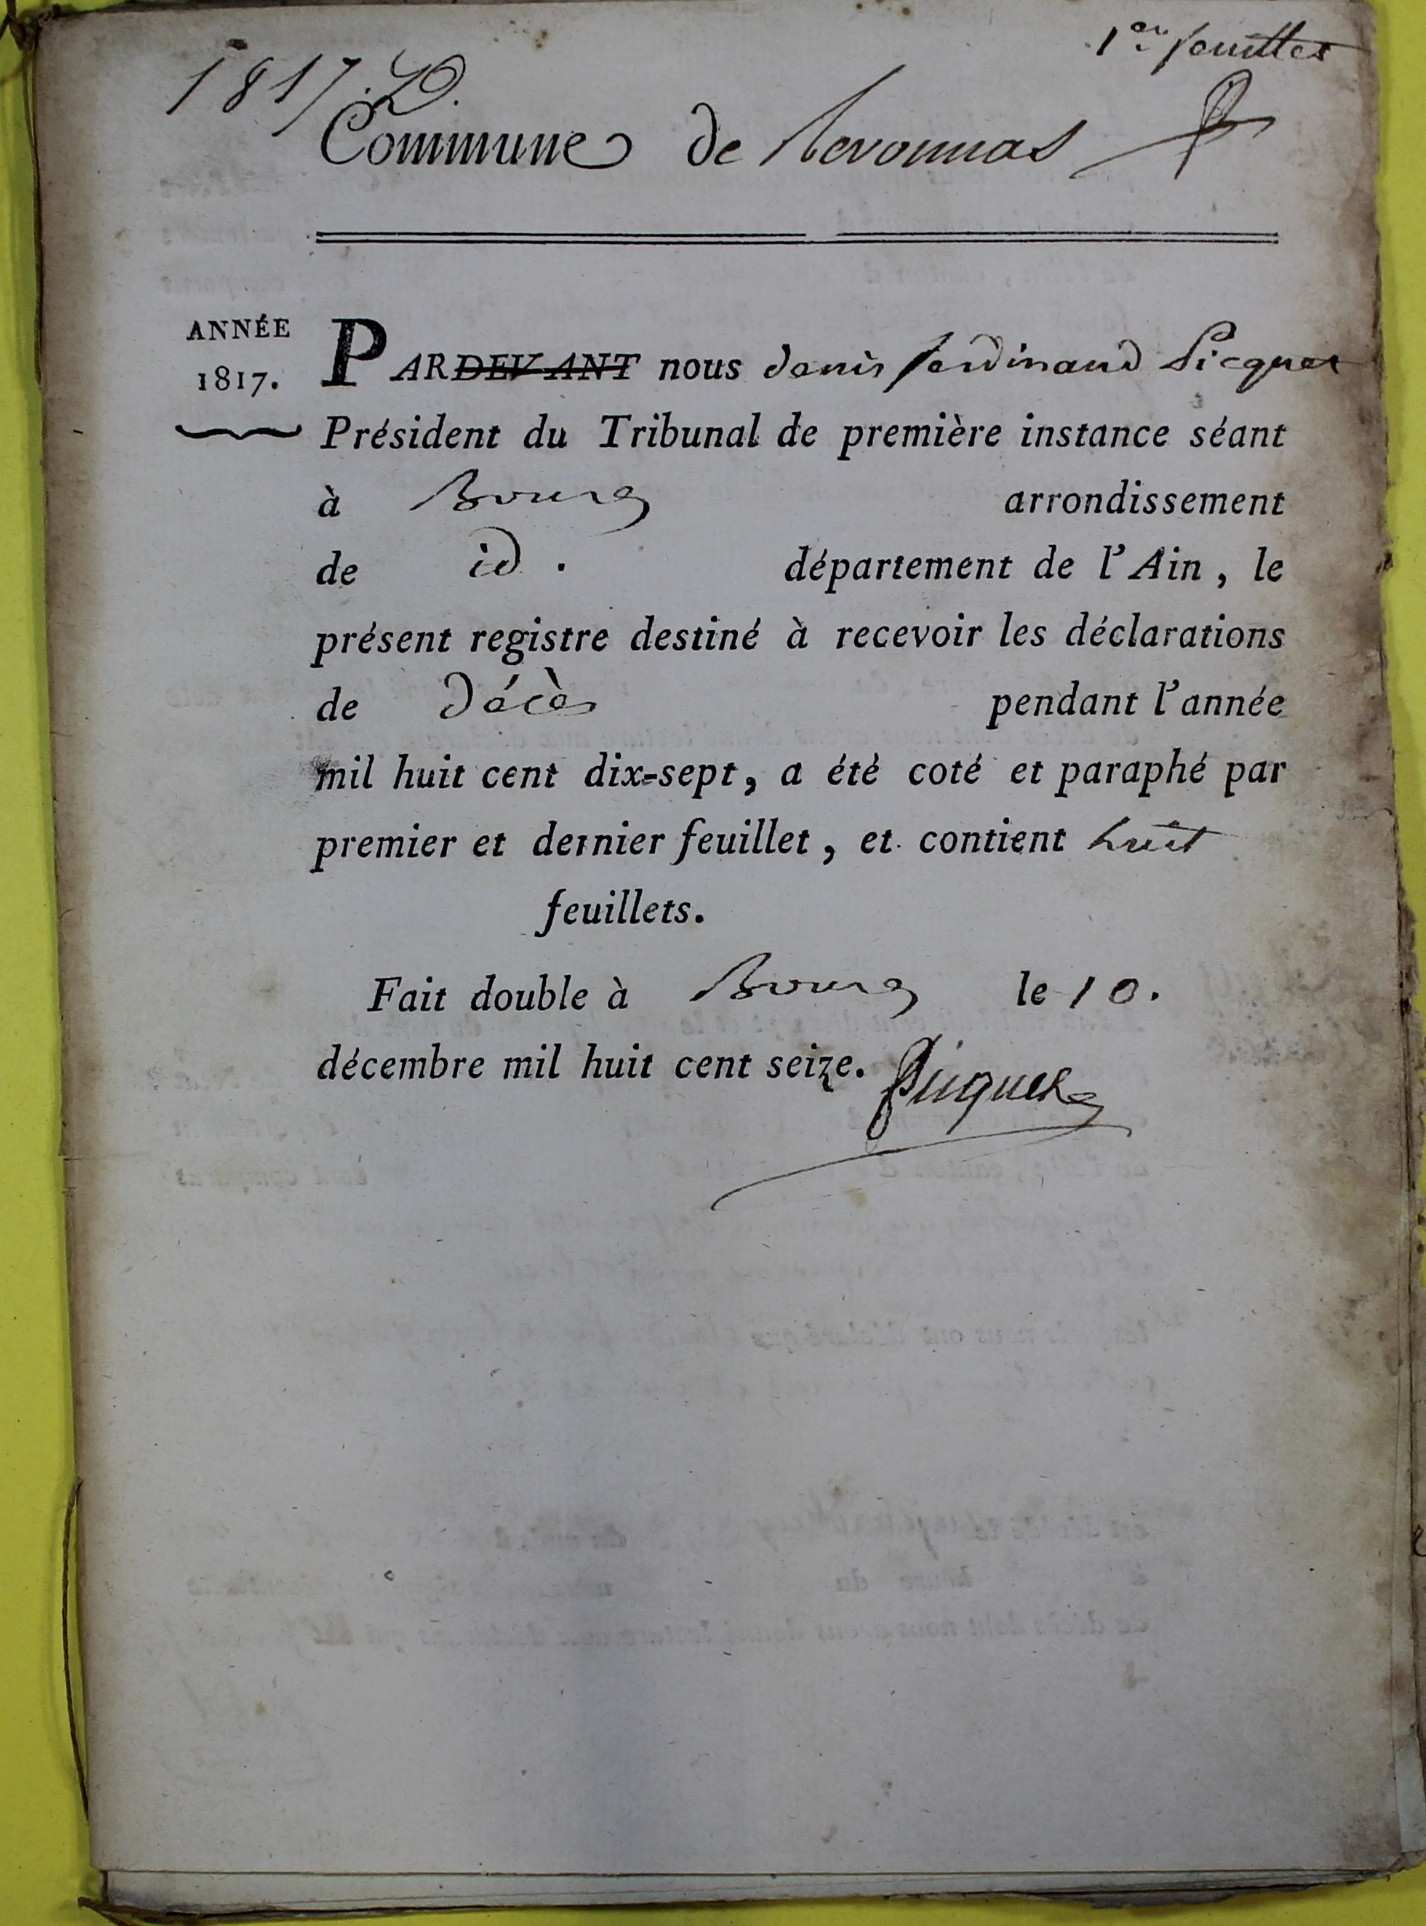 1er feuillet
1817. D.
Commune de Revonnas
ANNÉE
1817.
PARDEVANT nous denis ferdinand Picquet
Président du Tribunal de première instance séant
à Bourg arrondissement
de id. département de l'Ain, le
présent registre destiné à recevoir les déclarations
de décès pendant l'année
mil huit cent dix-sept, a été coté et paraphé par
premier et dernier feuillet, et contient huit
feuillets.
Fait double à Bourg le 10.
décembre mil huit cent seize. Picquet